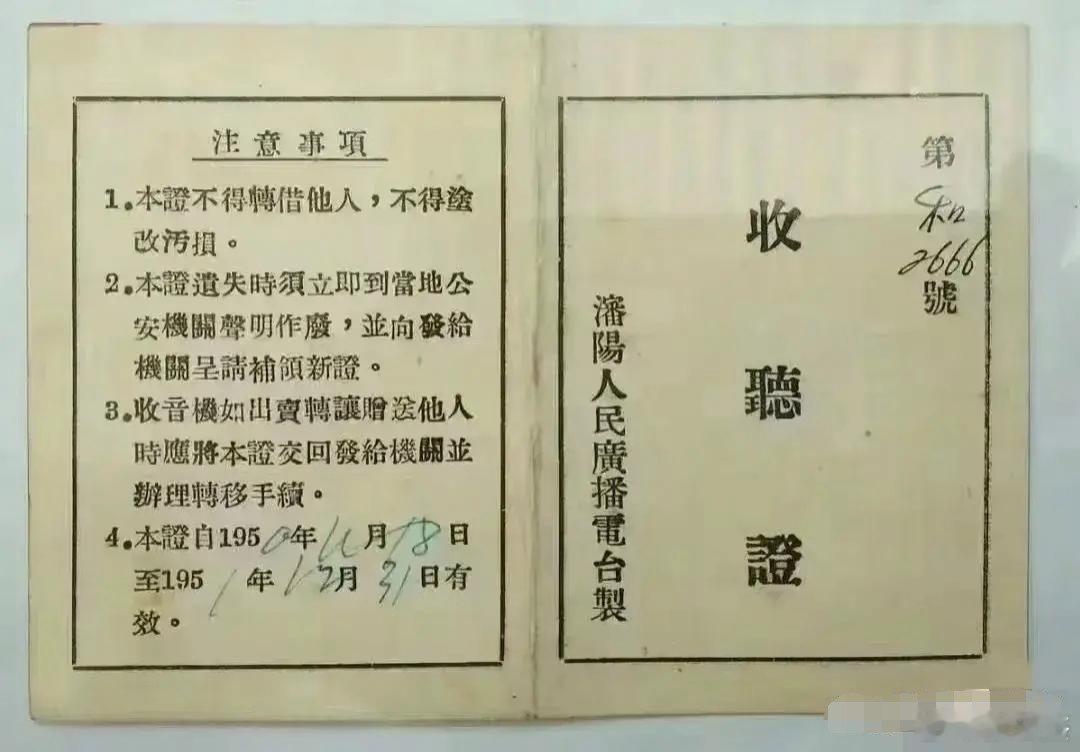 注意事項
1.本證不得轉借他人，不得塗
改污損。
2.本證遺失時須立即到當地公
安機關聲明作廢，並向發給
機關呈請補領新證。
3.收音機如出賣轉讓贈送他人
時應將本證交回發給機關並
辦理轉移手續。
4.本證自1950年11月18日
至1951年12月31日有
效。
第
和
2666
號
收聽證
瀋陽人民廣播電台製